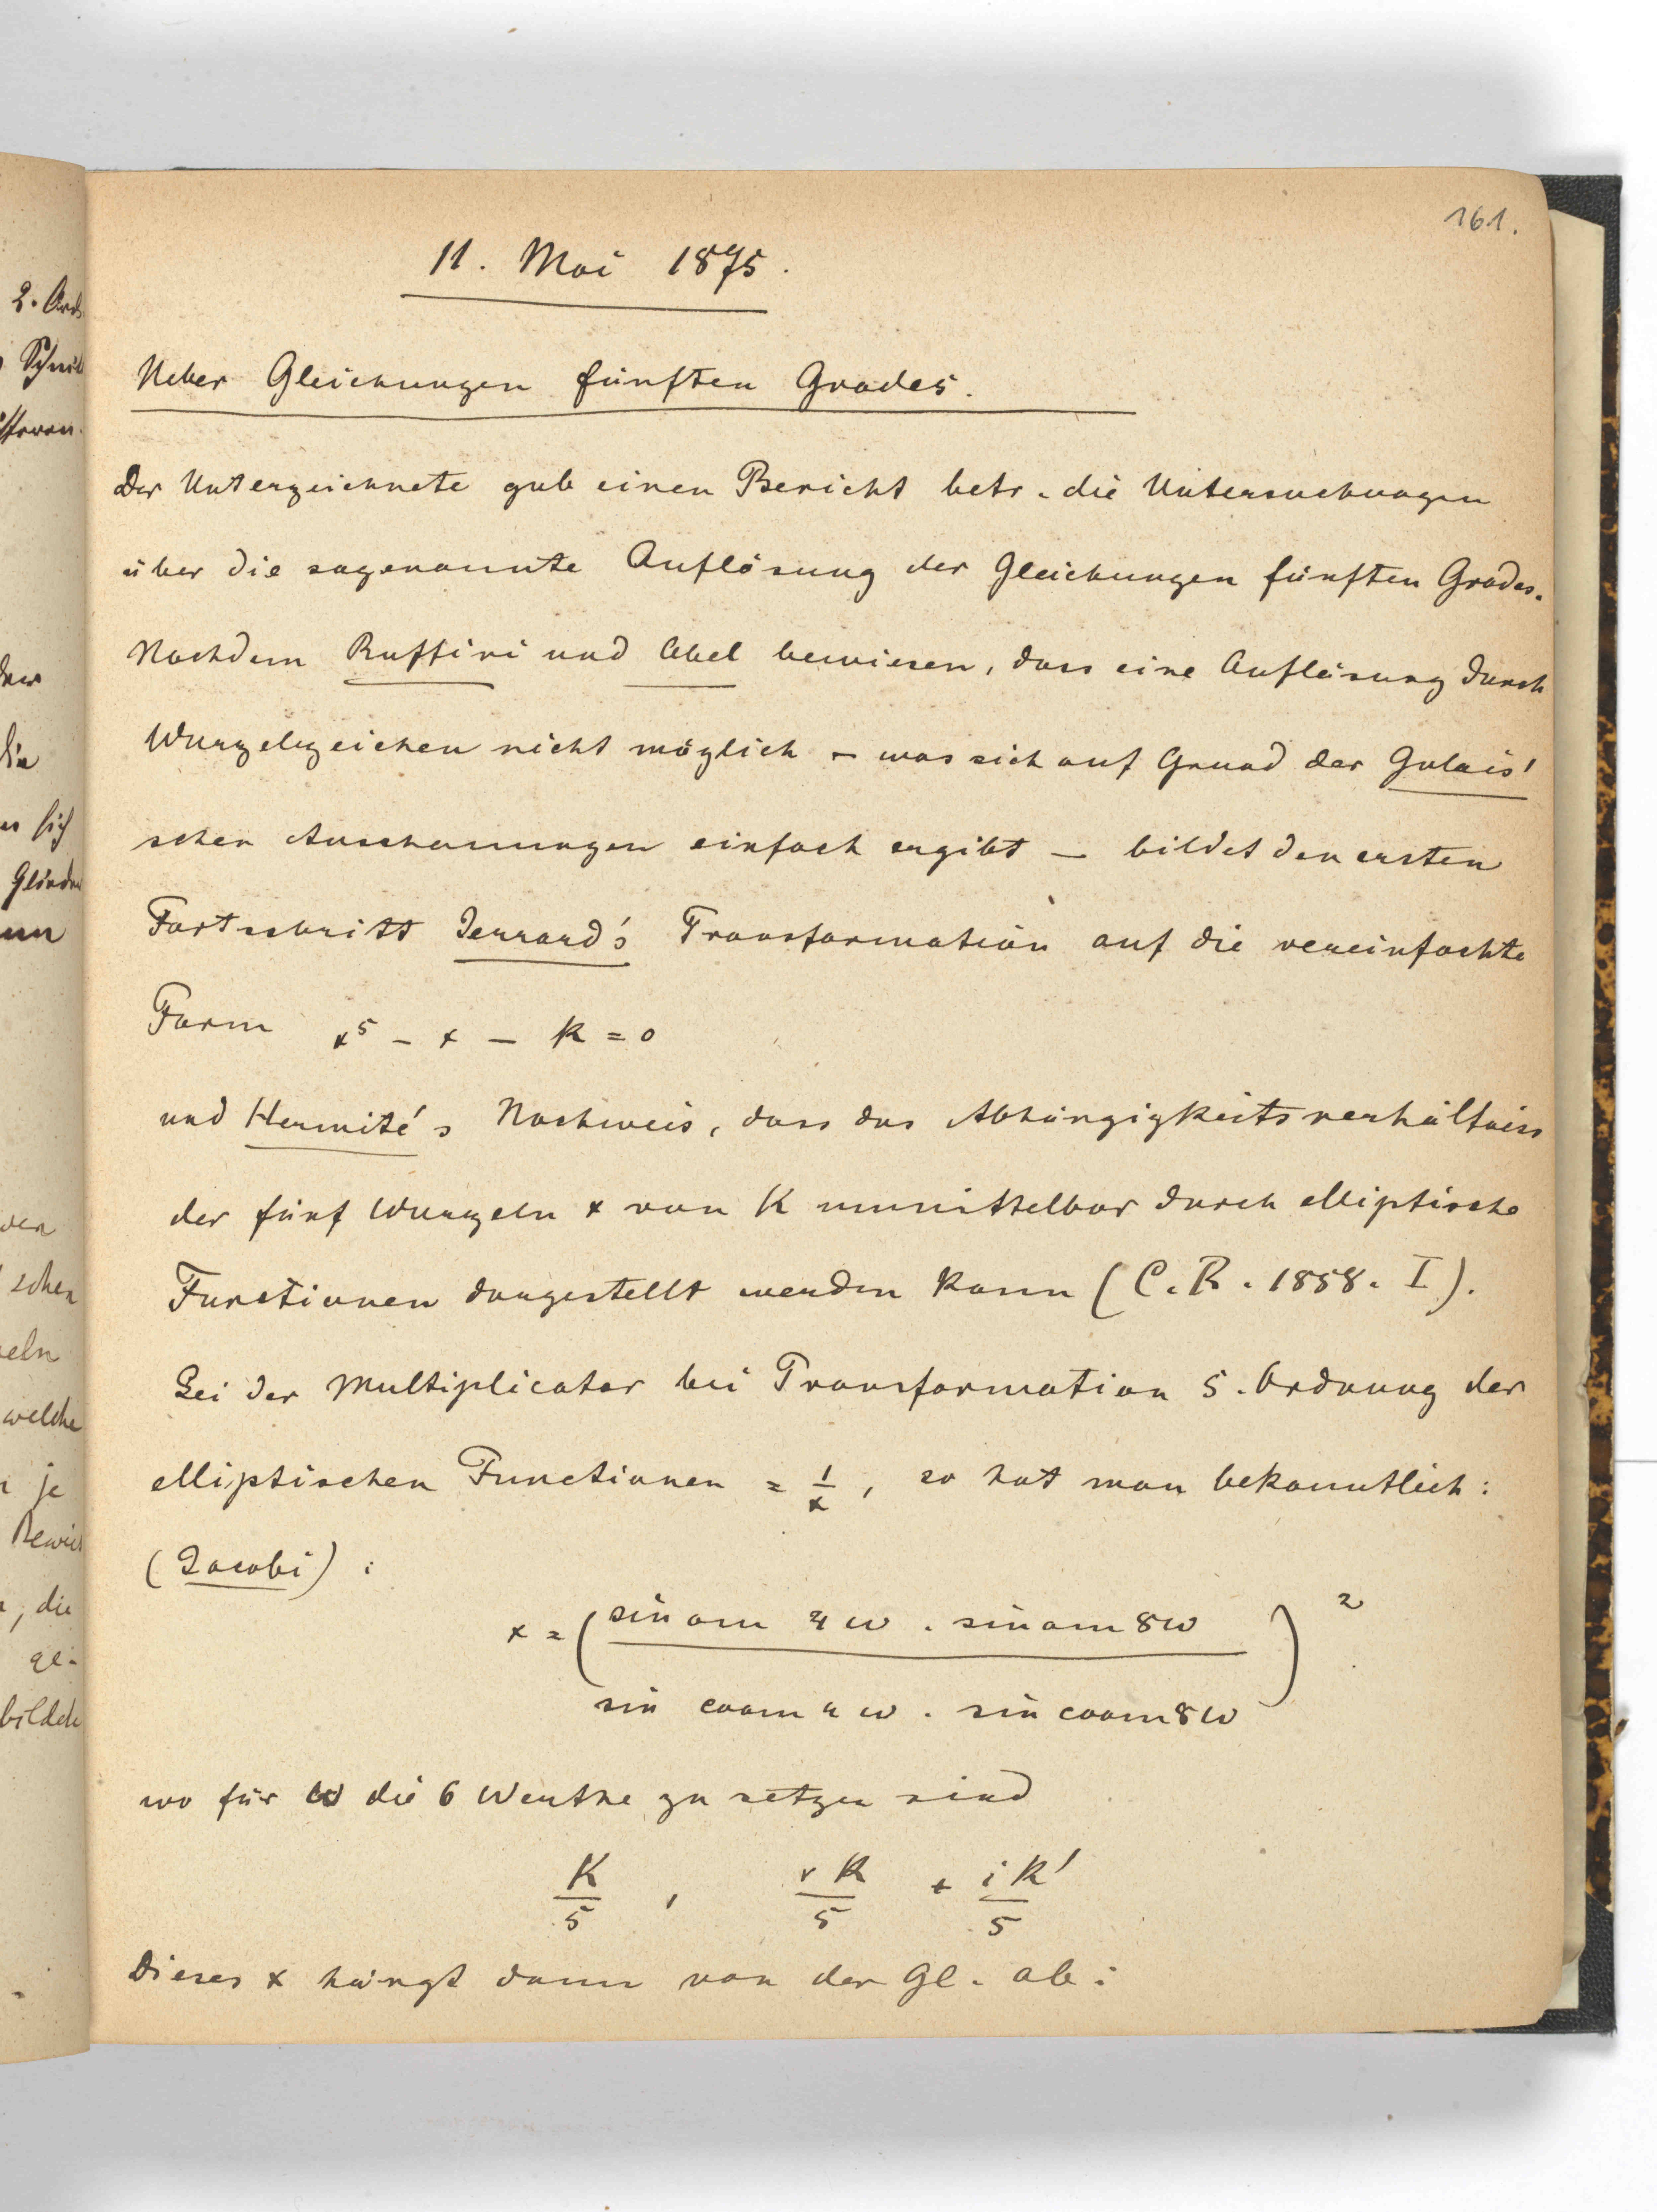 161.
11. Mai 1875.
Ueber Gleichungen fünften Grades.
Der Unterzeichnete gab einen Bericht betr. die Untersuchungen
über die sogenannte Auflösung der Gleichungen fünften Grades.
Nachdem Ruffini und Abel bewiesen, dass eine Auflösung durch
Wurzelzeichen nicht möglich – was sich auf Grund der Galois'
schen Anschauungen einfach ergibt – bildet den ersten
Fortschritt Jerrard's Transformation auf die vereinfachte
Form x⁵ – x – k = 0
und Hermite's Nachweis, dass das Abhängigkeitsverhältniss
der fünf Wurzeln x von K unmittelbar durch elliptische
Functionen dargestellt werden kann (C. R. 1858. I).
Sei der Multiplicator bei Transformation 5. Ordnung der
elliptischen Functionen = 1/x, so hat man bekanntlich:
(Jacobi):
x = ( sin am 4ω . sin am 8ω / sin coam 4ω . sin coam 8ω )²
wo für ω die 6 Werthe zu setzen sind
K/5 , rK/5 + iK'/5
Dieses x hängt dann von der Gl. ab:
2. Ord
die
sich
schen
eln
welche
je
, die
ge-
bilde